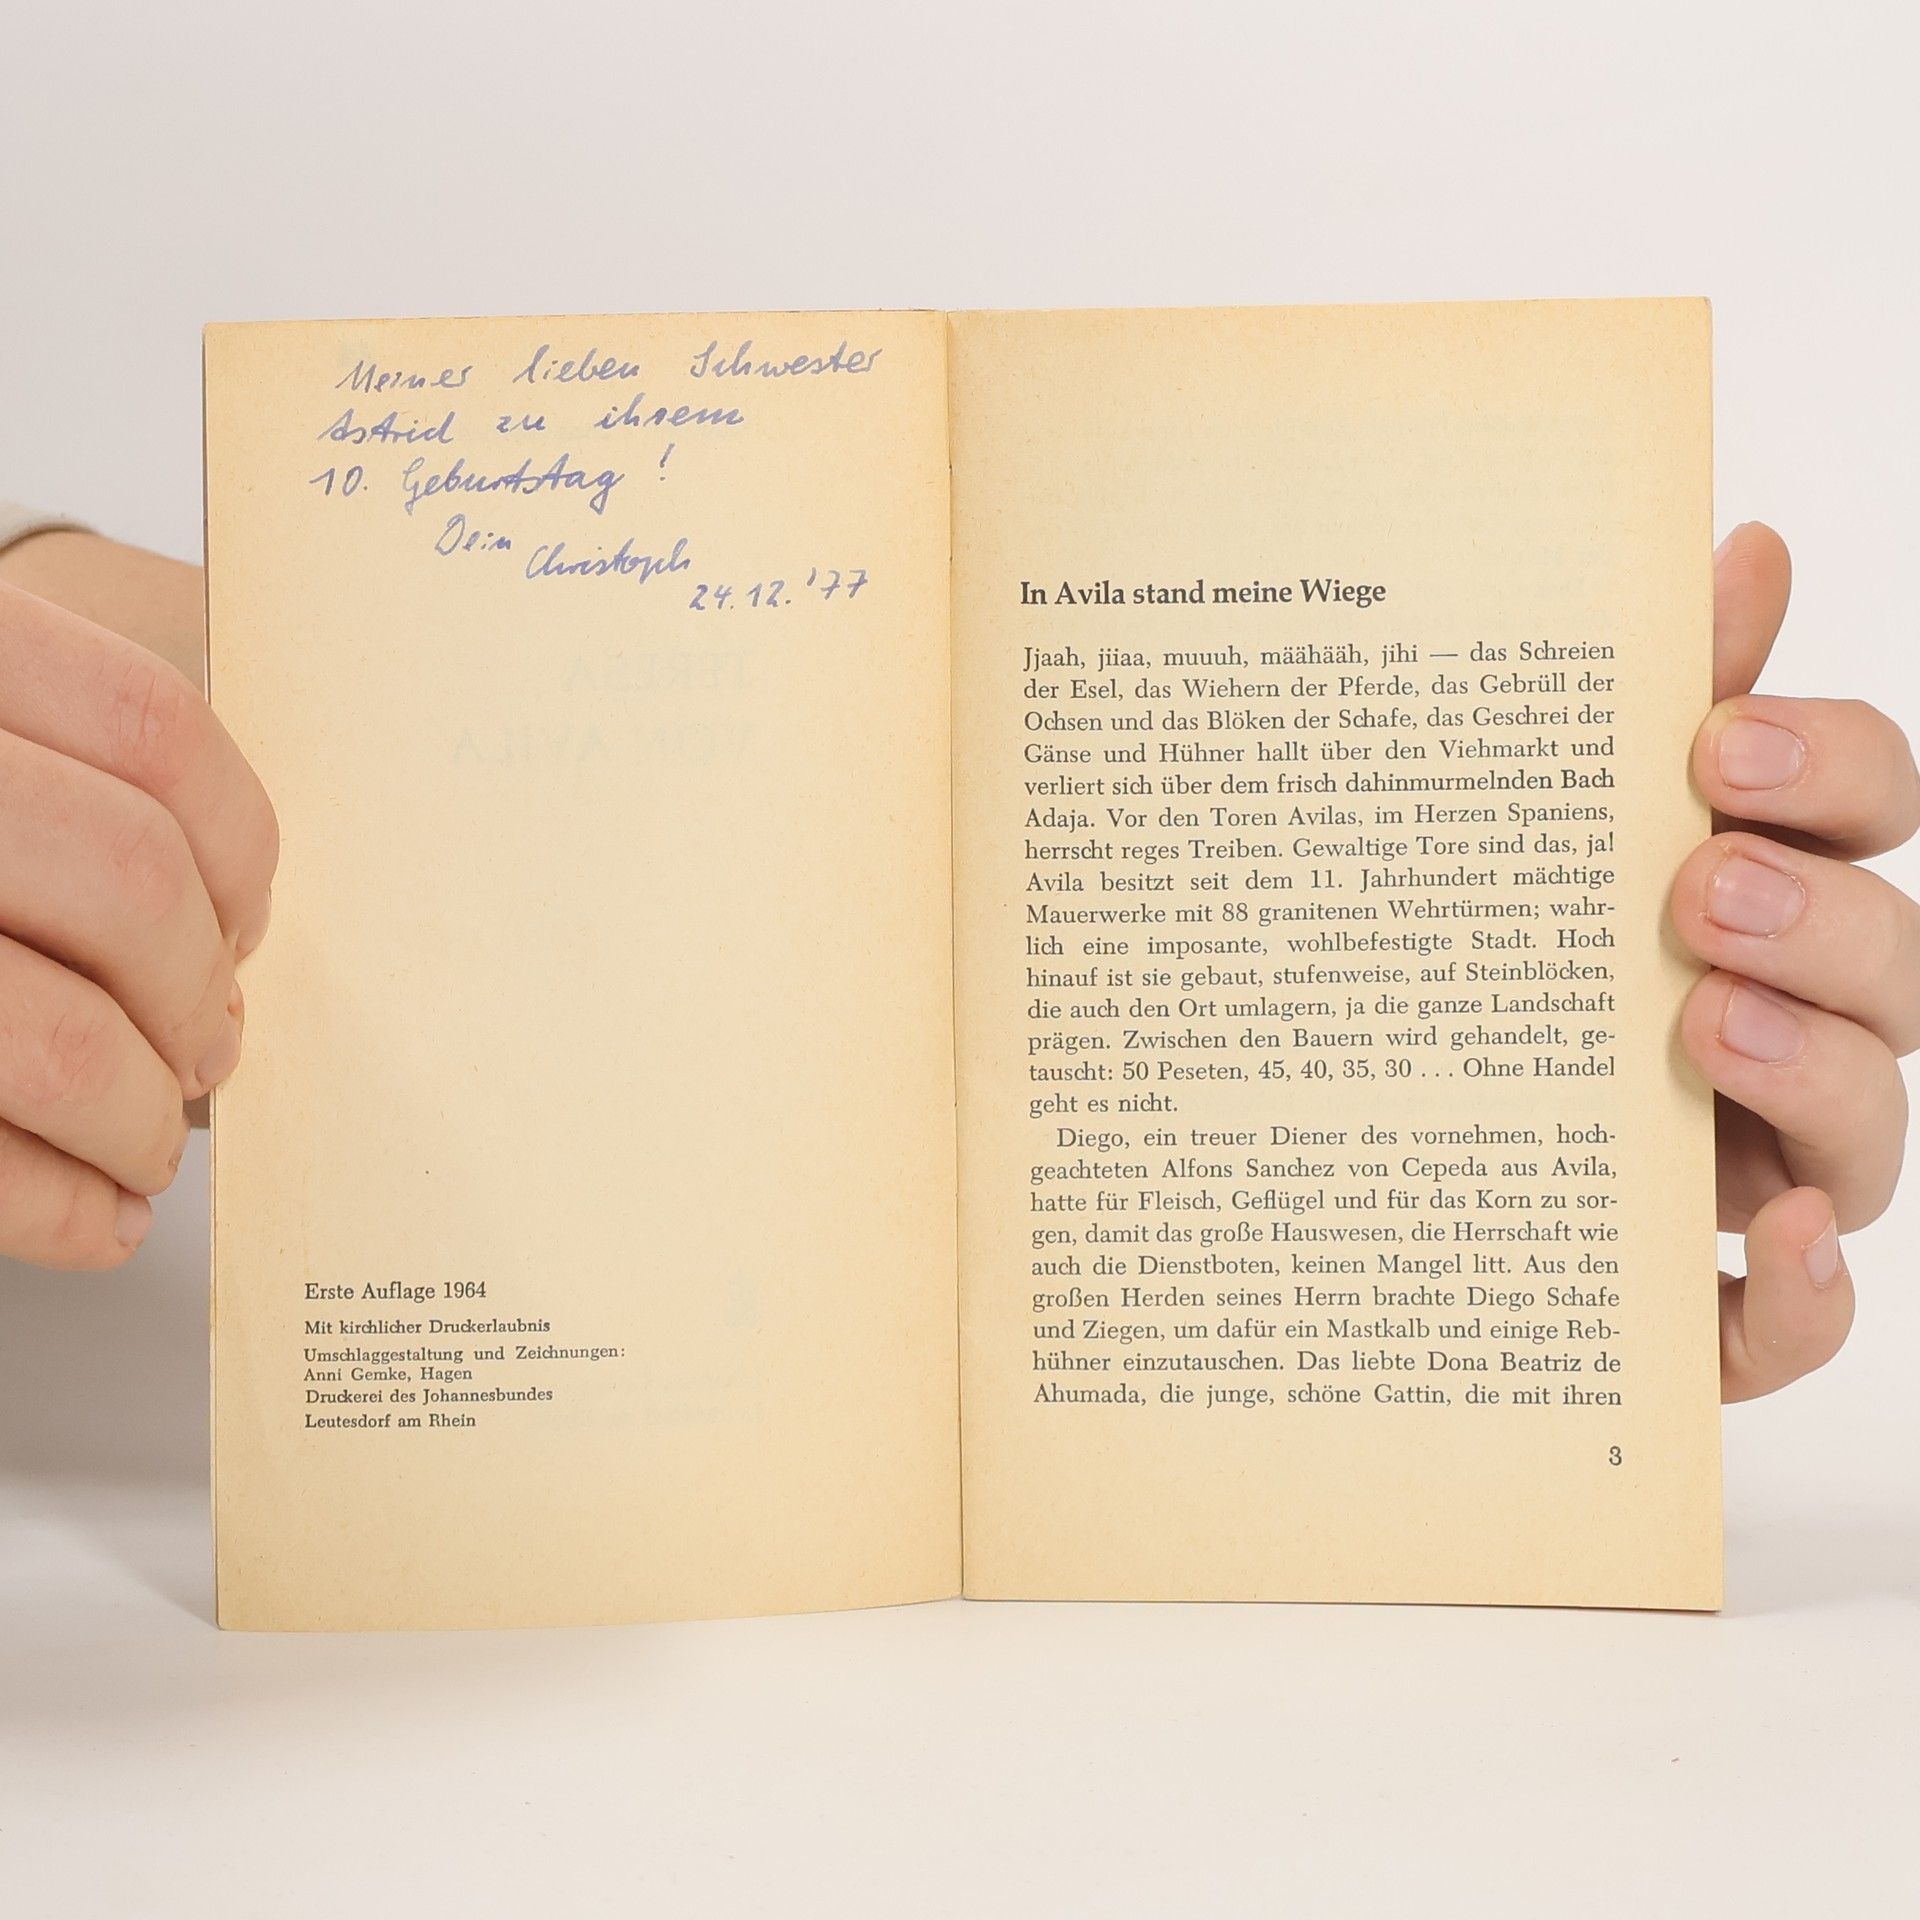 Meiner lieben Schwester
Astrid zu ihrem
10. Geburtstag !
Dein
Christoph
24.12.'77
Erste Auflage 1964
Mit kirchlicher Druckerlaubnis
Umschlaggestaltung und Zeichnungen:
Anni Gemke, Hagen
Druckerei des Johannesbundes
Leutesdorf am Rhein
In Avila stand meine Wiege
Jjaah, jiiaa, muuuh, määhääh, jihi — das Schreien
der Esel, das Wiehern der Pferde, das Gebrüll der
Ochsen und das Blöken der Schafe, das Geschrei der
Gänse und Hühner hallt über den Viehmarkt und
verliert sich über dem frisch dahinmurmelnden Bach
Adaja. Vor den Toren Avilas, im Herzen Spaniens,
herrscht reges Treiben. Gewaltige Tore sind das, ja!
Avila besitzt seit dem 11. Jahrhundert mächtige
Mauerwerke mit 88 granitenen Wehrtürmen; wahr-
lich eine imposante, wohlbefestigte Stadt. Hoch
hinauf ist sie gebaut, stufenweise, auf Steinblöcken,
die auch den Ort umlagern, ja die ganze Landschaft
prägen. Zwischen den Bauern wird gehandelt, ge-
tauscht: 50 Peseten, 45, 40, 35, 30 . . . Ohne Handel
geht es nicht.
Diego, ein treuer Diener des vornehmen, hoch-
geachteten Alfons Sanchez von Cepeda aus Avila,
hatte für Fleisch, Geflügel und für das Korn zu sor-
gen, damit das große Hauswesen, die Herrschaft wie
auch die Dienstboten, keinen Mangel litt. Aus den
großen Herden seines Herrn brachte Diego Schafe
und Ziegen, um dafür ein Mastkalb und einige Reb-
hühner einzutauschen. Das liebte Dona Beatriz de
Ahumada, die junge, schöne Gattin, die mit ihren
3